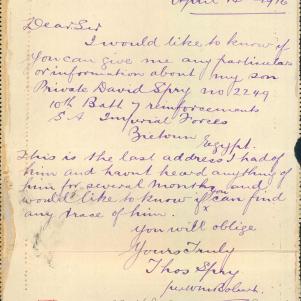 April 12 1916
Dear Sir
I would like to know if
you can give me any particulars
or information about my son
Private David Spry no 2249
10th Batt 7 reinforcements
S A Imperial Forces
Zietoun Egypt.
This is the last address I had of
him and havnt heard anything of
him for several months and
would like to know if you can find
any trace of him.
you will oblige
Yours Truly
Thos Spry
per Wm